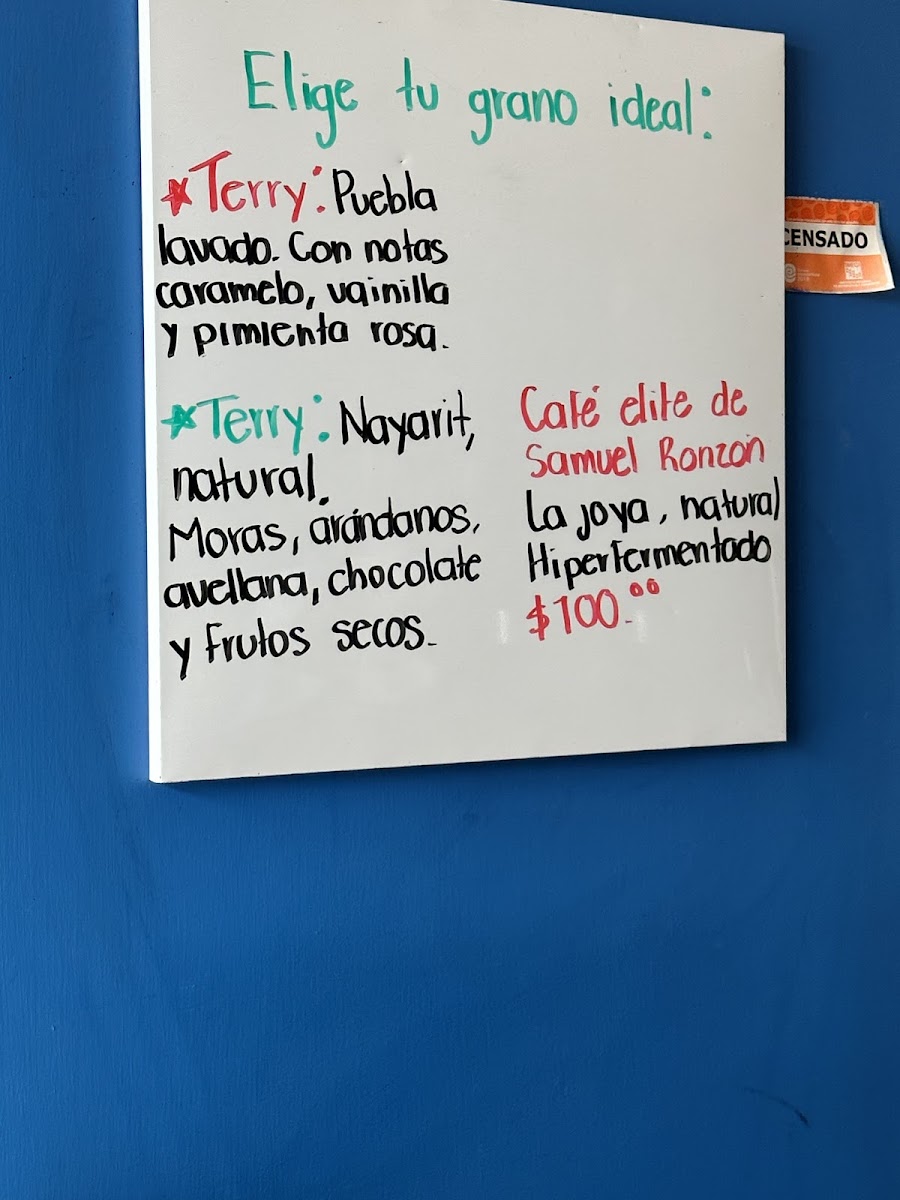 Elige tu grano ideal:
*Terry: Puebla
lavado. Con notas
caramelo, vainilla
y pimienta rosa.
*Terry: Nayarit,
natural.
Moras, arándanos,
avellana, chocolate
y frutos secos.
Café elite de
Samuel Ronzón
La joya, natural
Hiperfermentado
$100.00
CENSADO